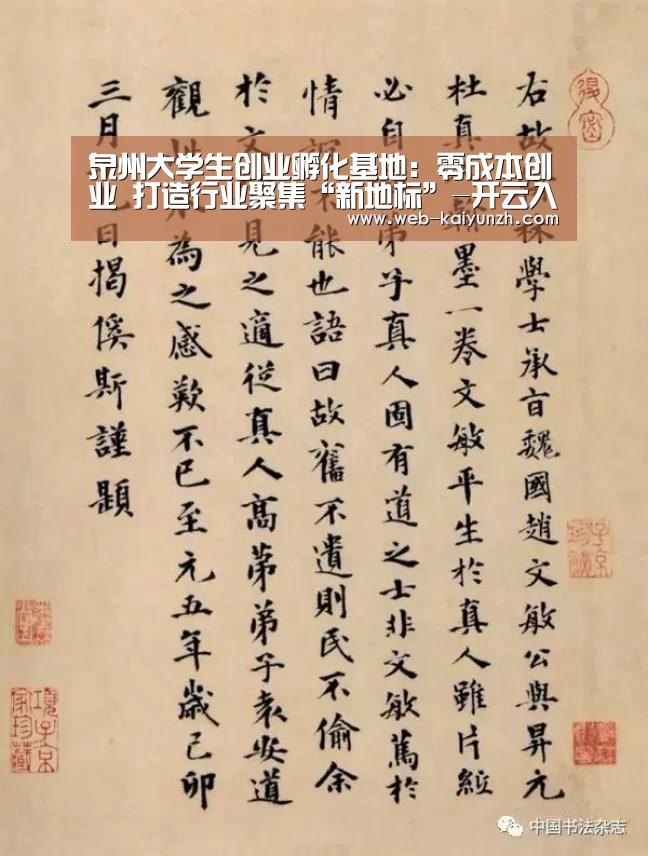 泉州大学生创业孵化基地：零成本创
业 打造行业聚集“新地标”-开云入
www.web-kaiyunzh.com
右故林學士承旨魏國趙文敏公與昇元
杜真翰墨一卷文敏平生於真人雖片紙
必自弟子真人固有道之士非文敏篤於
情不能也語曰故舊不遺則民不偷余
於文見之適從真人高第弟子袁安道
觀為之感歎不已至元五年歲己卯
三月日揭傒斯謹題
項子京家珍藏
中国书法杂志